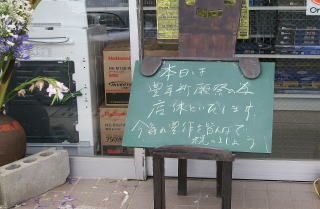 本日は
豊年祈願祭の為
店休といたします
今年の豊作を皆んなで
祝いましょう
750